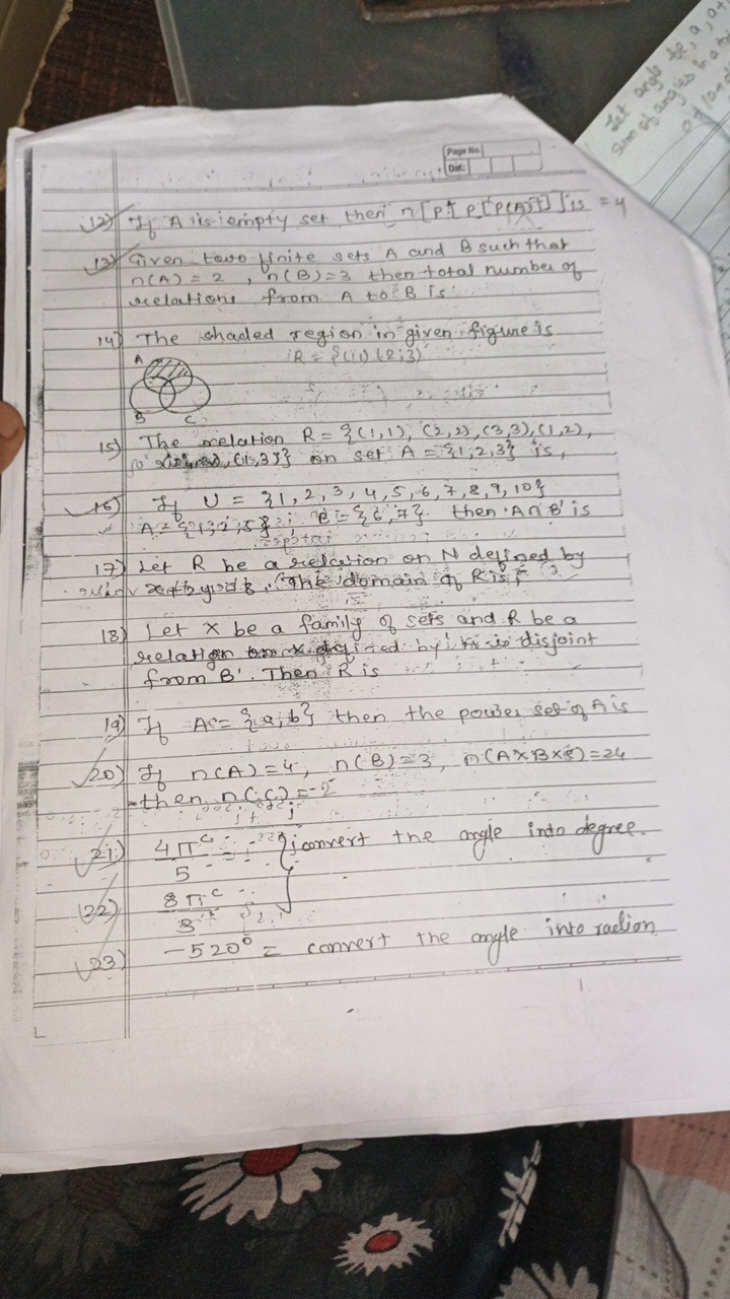 Page No.
Date
12) If A is empty set then n[P[P[P(A)]]] is = 4
13) Given two finite sets A and B such that
n(A) = 2, n(B) = 3 then total number of
relations from A to B is
14) The shaded region in given figure is
A
R = {(1,1) (2,3)
B C
15) The relation R = {(1,1), (2,2), (3,3), (1,2),
(1,3)} on set A = {1,2,3} is,
16) If U = {1, 2, 3, 4, 5, 6, 7, 8, 9, 10}
B = {6, 7} then A∩B' is
17) Let R be a relation on N defined by
The domain of R is
18) Let X be a family of sets and R be a
relation on X defined by is disjoint
from B'. Then R is
19) If A = {a, b} then the power set of A is
20) If n(A) = 4, n(B) = 3, n(A×B×C) = 24
then n(C) = 2
21) 4π^c
5
convert the angle into degree.
22) 8π^c
3
23) -520° = convert the angle into radian
Let angle be a, a+
sum of angles in a